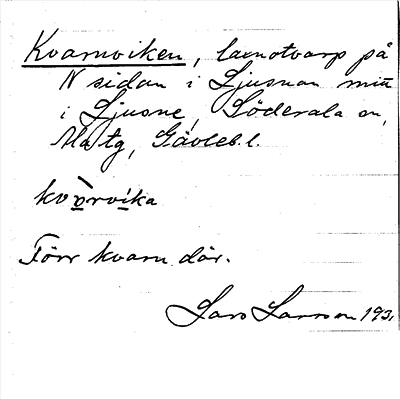 Kvarnviken, laxnotvarp på
N sidan i Ljusnan
i Ljusne, Söderala sn,
Ala tg, Gävleb. l.
kvàrvika
Förr kvarn där.
Lars Larsson 193